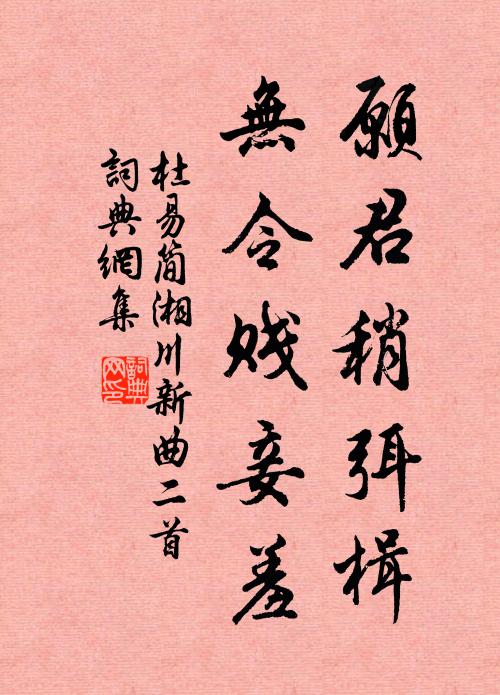 願君稍弭楫
無令賤妾羞
杜易簡湘川新曲二首
詞典網集
詞典網印